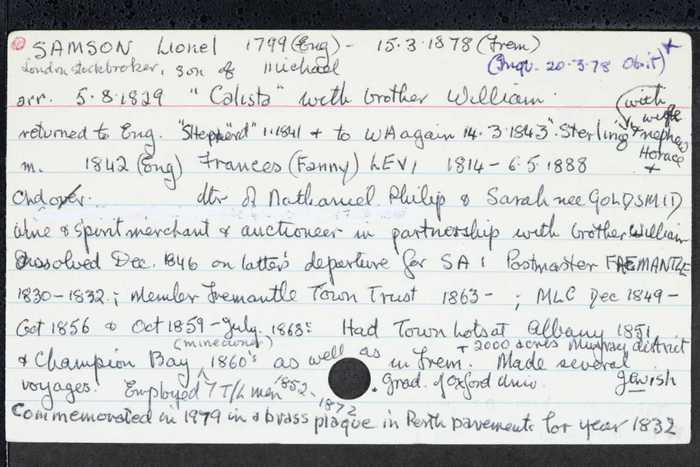 SAMSON Lionel 1799 (Eng) - 15.3.1878 (Frem)
London stockbroker, son of Michael (Inqu. 20-3-78 Obit) x
arr. 5.8.1829 "Calista" with brother William. (with wife
returned to Eng. "Shepherd" 1.1841 & to WA again 14.3.1843 "Sterling" & nephew Horace
m. 1842 (Eng) Frances (Fanny) LEVI 1814-6.5.1888
Chd over. dtr of Nathaniel Philip & Sarah nee GOLDSMID
Wine & Spirit merchant & auctioneer in partnership with brother William
dissolved Dec. 1846 on latter's departure for SA ; Postmaster FREMANTLE
1830-1832 ; Member Fremantle Town Trust 1863- ; MLC Dec 1849-
Oct 1856 & Oct 1859-July. 1868: Had Town lots at Albany 1851
& Champion Bay (mineowner) 1860's as well as in Frem. + 2000 acres Murray district Made several
voyages. Employed 7 T/L men 1852-1872. Grad. of Oxford Univ. Jewish
Commemorated in 1979 in a brass plaque in Perth pavement for year 1832